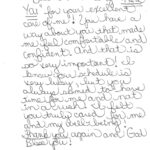 You for your excellent
care of me! You have a
way about you that made
me feel comfortable and
confident. And that is
so very important! I
know your schedule is
very busy, but you
always seemed to have
time for me and
in a rush! I felt
you truly cared for me
and my well being.
Thank you again and God
Bless you!